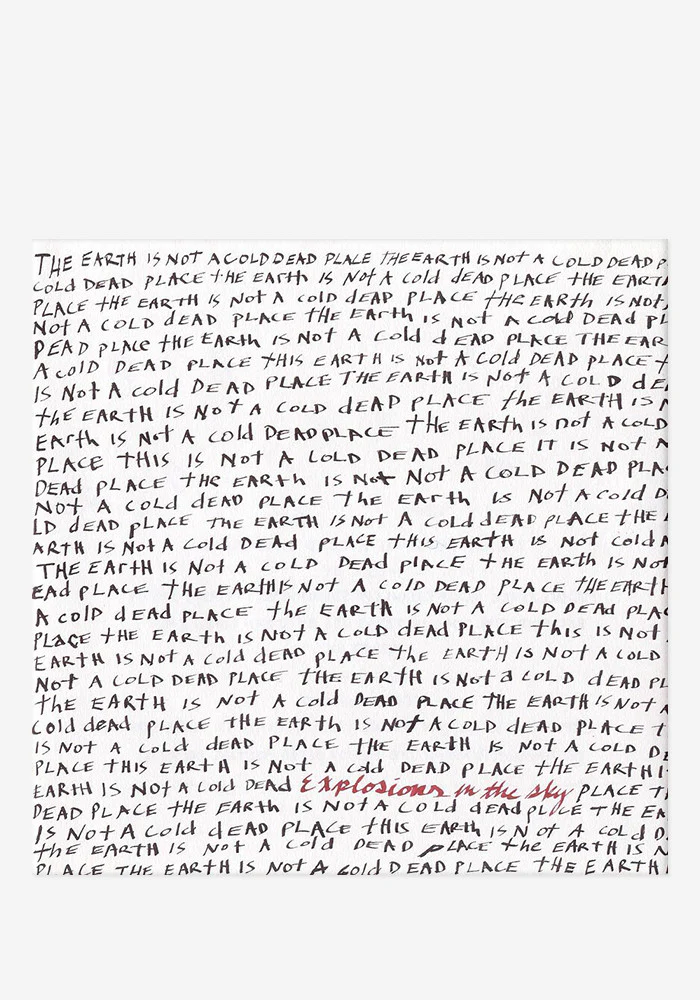 THE EARTH IS NOT A COLD DEAD PLACE THE EARTH IS NOT A COLD DEAD P
COLD DEAD PLACE tHE EARth IS Not A cold dEAD PLACE tHE EARTH
PLACE tHE EARTH IS Not A cold dEAD PLACE tHE EARTH IS Not
Not A COLD dEAD PLACE tHE EARth IS Not A cold DEAd PL
DEAD PLAcE tHE EARth IS Not A Cold dEAD PLACE THE EAR
A colD DEAD PLACE tHIS EARTH IS Not A Cold DEAD PLACE t
IS Not A cold DEAD PLACE THE EARtH IS Not A COLD dE
thE EARTH IS Not A COLD dEAD PLACE thE EARTH IS N
EARth IS Not A cold DEAD PLACE tHE EARTH IS not A COLD
PLACE THIS IS Not A COLD DEAD PLACE IT IS Not A
DEAd PLACE tHE EARth IS Not Not A COLD DEAD PLA
Not A cold dEAD PLACE tHE EARth IS Not A cold D
LD dEAD pLACE THE EARTH IS Not A cold dEAD PLACE tHE
ARTH IS Not A Cold DEAd PLACE tHIS EARTH IS Not cold A
THE EARtH IS Not A cold DEAd plACE tHE EARth IS Not
EAd PLACE tHE EARtH IS Not A cold DEAD PLACE tHE EARtH
A colD dEAD PLACE thE EARtH IS Not A COLD DEAd PLAC
PLACE tHE EARth IS Not A COLD dEAd PLACE this IS Not
EARTH IS Not A cold dEAD pLACE thE EARTH IS Not A COLD
Not A COLD DEAD PLACE THE EARTH IS Not a COLD dEAD PL
thE EARTH IS Not A cold DEAD PLACE THE EARTH IS Not A
Cold deAd PLACE tHE EARth IS Not A COLD dEAD PLACE t
IS Not A cold dEAD PLACE tHE EARtH IS Not A COLD DE
PLACE tHIS EARtH IS Not A cold DEAD PLACE tHE EARTH I
EARTH IS Not A cold DEAD Explosions in the sky PLACE T
DEAD PLACE tHE EARth IS Not A Cold dEAd pLACE tHE EA
IS Not A Cold dEAD PLACE tHIS EARth IS Not A Cold D
thE EARTH IS Not A Cold DEAD pLACE thE EARtH IS N
PLACE tHE EARTH IS Not A cold DEAD PLACE tHE EARTH